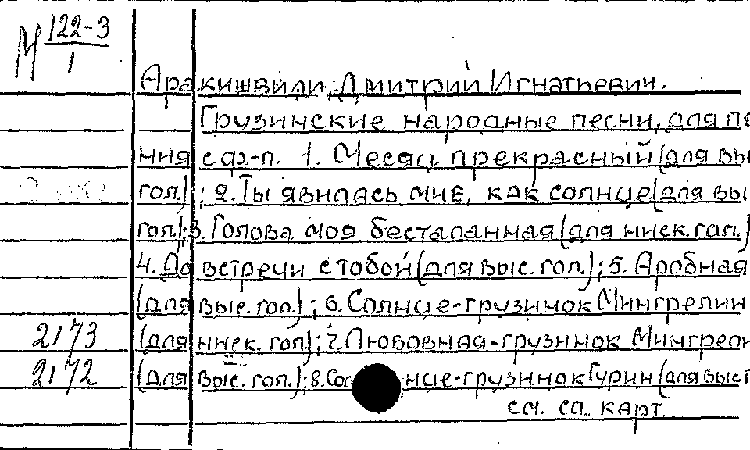 М 122-3
1
Аракишвили, Дмитрий Игнатьевич.
Грузинские народные песни, для пе
ния с ф-п. 1. Месяц прекрасный (для вы
гол.); 2. Ты явилась мне, как солнце (для вы
гол.); 3. Голова моя бесталанная (для низк. гол.)
4. До встречи с тобой (для выс. гол.); 5. Аробная
(для выс. гол.); 6. Солнце-грузинок Мингрелии
2173 (для низк. гол.); 7. Любовная-грузинок Мингрели
2172 (для выс. гол.); 8. Со нце-грузинок Гурии (для выс г
см. сл. карт.